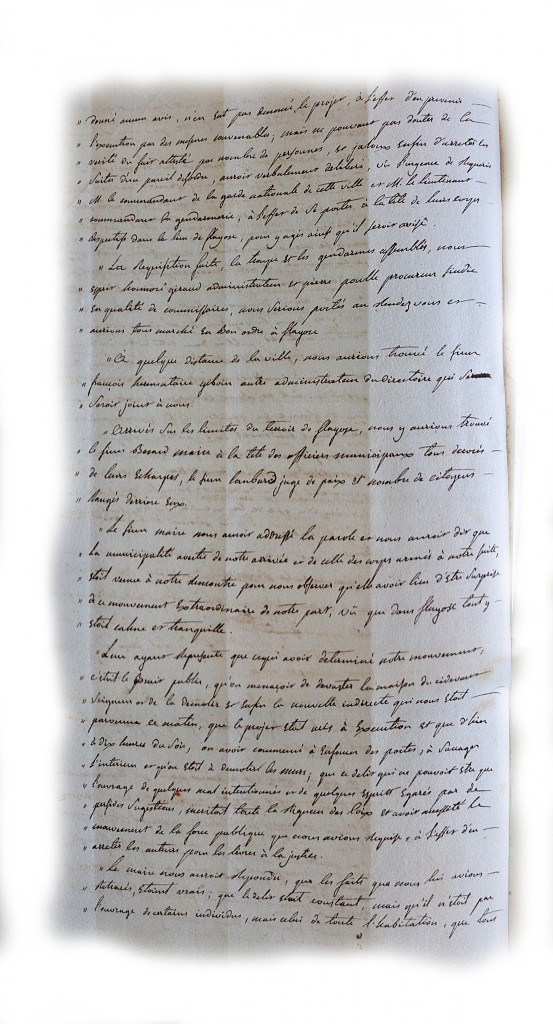 " donné aucun avis, n'en eut pas denoncé, le projet, à l'effet d'en prevenir
" l'execution par des moyens convenables; mais ne pouvant pas douter de la
" verité du fait attesté par nombre de personnes, et jaloux enfin d'arreter les
" suites d'un pareil desordre, aurions verbalement deliberé, vû l'urgence de requerir
" M. le commandant de la garde nationale de cette ville et M. le lieutenant
" commandant la gendarmerie, à l'effet de se porter, à la tête de leurs corps
" respectifs dans le lieu de flayosc, pour y agir ainsi qu'il seroit avisé.
" La requisition faite, la troupe et les gendarmes assemblés, nous
" esprit honnoré giraud administrateur et pierre poulle procureur sindic
" en qualité de commissaires, nous serions portés au rendez vous et
" aurions tous marché en bon ordre à flayosc
" à quelque distance de la ville, nous aurions trouvé le sieur
" françois hermentaire autre administrateur du directoire qui se
" seroit joint à nous.
" Arrivés sur les limites du terroir de flayosc, nous y aurions trouvé
" le sieur maire à la tête des officiers municipaux tous decorés
" de leurs Echarpes, le sieur lombard juge de paix et nombre de citoyens
" rangés derriere Eux.
" Le sieur maire nous auroit addressé la parole et nous auroit dit que
" la municipalité avertie de notre arrivée et de celle des corps armés à notre suite,
" etoit venue à notre rencontre pour nous observer qu'elle avoit lieu d'Etre surprise
" de ce mouvement Extraordinaire de notre part, vû que dans flayosc tout y
" etoit calme et tranquille.
" Leur ayant représenté que ce qui avoit determiné notre mouvement,
" c'etoit le bruit public, qu'on menaçoit de devaster la maison du cidevant
" seigneur et de la demolir et enfin la nouvelle indirecte qui nous etoit
" parvenue ce matin, que le projet etoit mis à Execution et que d'hier
" à dix heures du soir, on avoit commencé à enfoncer des portes, à saccager
" l'interieur et qu'on etoit à demolir les murs; que ce delit qui ne pouvoit etre que
" l'ouvrage de quelques mal intentionnés et de quelques Esprits Egarés par de
" perfides sugestions, meritoit toute la rigueur des loix et avoit necessité le
" mouvement de la force publique que nous avions requise, à l'effet d'en
" arreter les autheurs pour les livrer à la justice.
" Le maire nous auroit repondu, que les faits que nous lui avions
" retracés, etoient vrais; que le delit etoit constant, mais qu'il n'etoit pas
" l'ouvrage de certains individus, mais celui de toute l'habitation, que tous